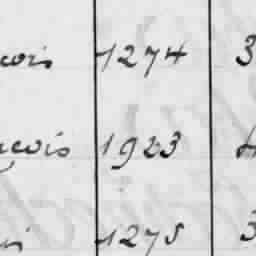 çois 1274 3
nçois 1923
is 1275 3